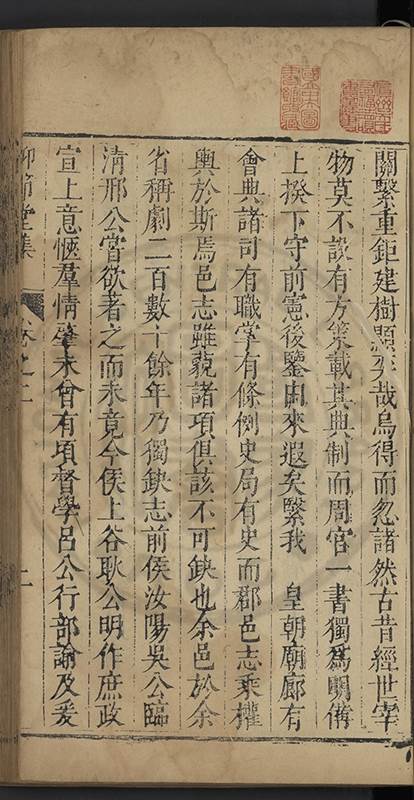 關繫重鉅建樹顯奕哉烏得而忽諸然古昔經世宰
物莫不設有方策載其典制而周官一書獨為明備
上揆下守前憲後鑒由來遐矣繄我 皇朝廟廊有
會典諸司有職掌有條例史局有史而郡邑志乘權
輿於斯焉邑志雖藐諸項俱該不可缺也余邑於余
省稱劇二百數十餘年乃獨缺志前侯汝陽吳公臨
清邢公嘗欲著之而未竟今侯上谷耿公明作庶政
宣上意愜羣情肇未曾有項督學呂公行部諭及爰
仰節堂集 卷之二 二